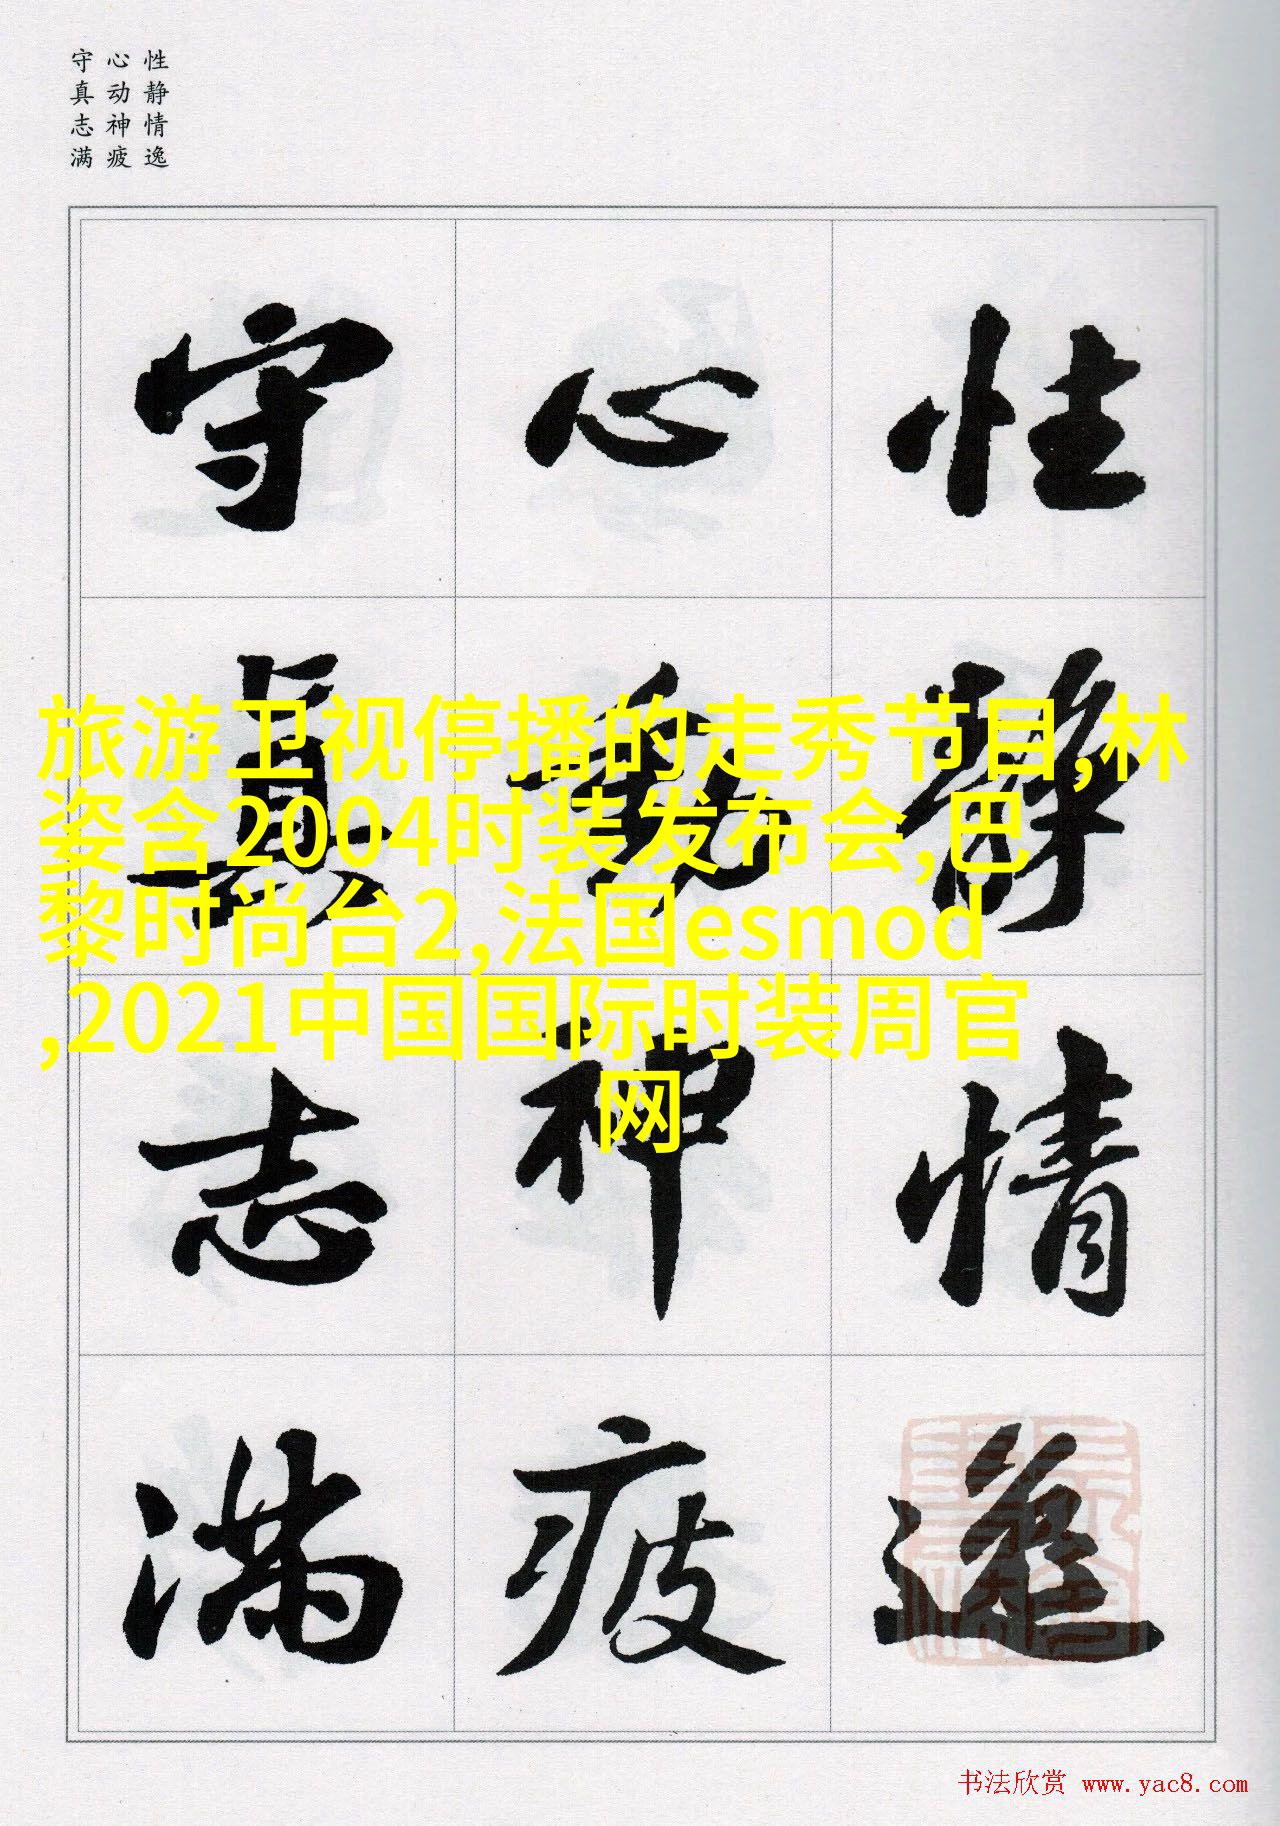 性静情逸
心动神疲
守真志满
性靜情逸
心動神疲
守真志满
旅游卫视停播的走秀节目,林
姿含2004时装发布会,巴
黎时尚台2,法国esmod
,2021中国国际时装周官
网
书法欣赏 www.yac8.com